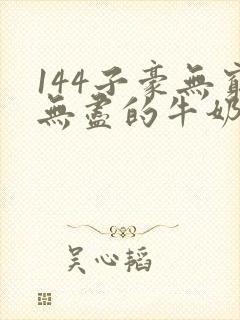 144子豪無窮
無盡的牛奶
吴心韬